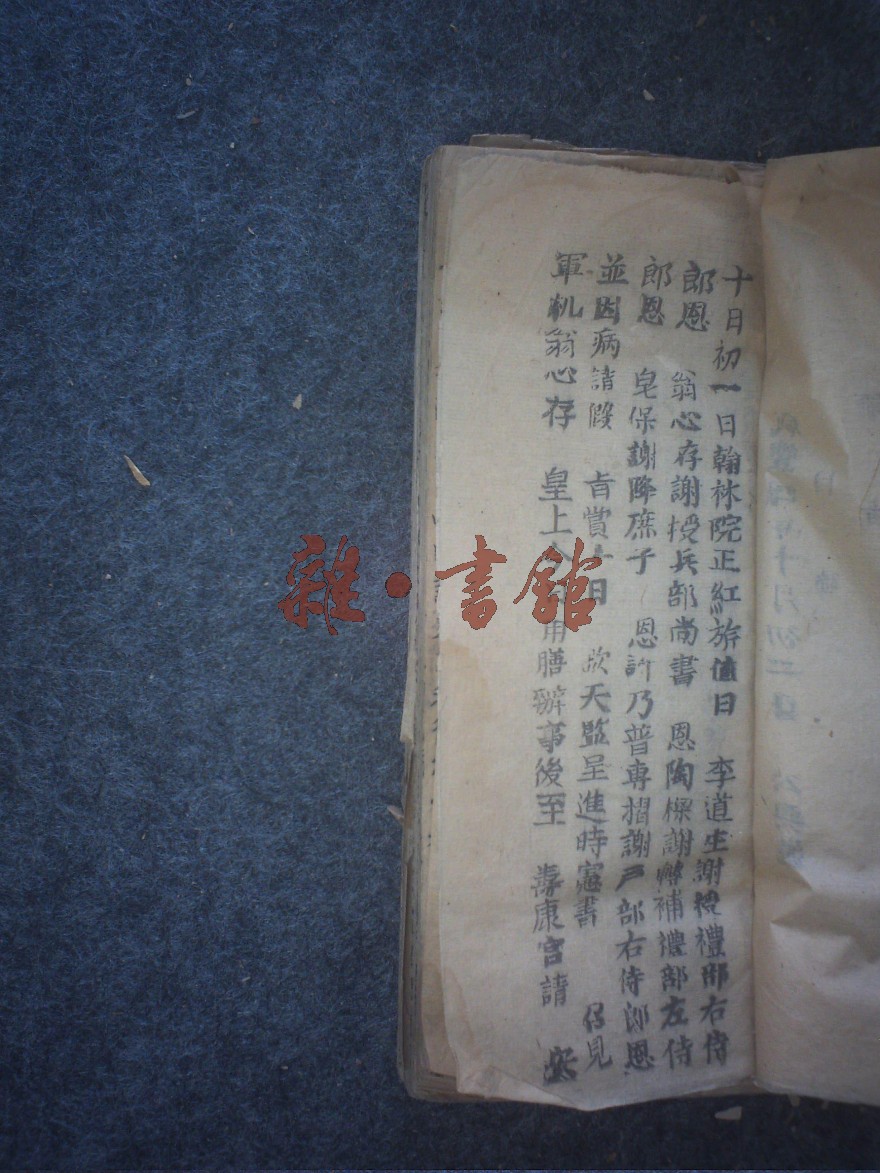 十日初一日翰林院正紅旂值日　李道生謝授禮部右侍
郎恩　翁心存謝授兵部尚書　恩陶樑謝轉補禮部左侍
郎恩　皂保謝降庶子　恩許乃普專摺謝戶部右侍郎恩
並因病請假　旨賞十日　欽天監呈進時憲書　召見
軍机翁心存　皇上令　用膳辦事後至　壽康宮請　安
雜·書館